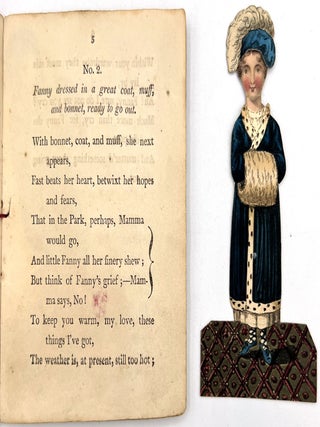 5
No. 2.
Fanny dressed in a great coat, muff,
and bonnet, ready to go out.
With bonnet, coat, and muff, she next
appears,
Fast beats her heart, betwixt her hopes
and fears,
That in the Park, perhaps, Mamma
would go,
And little Fanny all her finery shew;
But think of Fanny's grief;—Mam-
ma says, No!
To keep you warm, my love, these
things I've got,
The weather is, at present, still too hot;